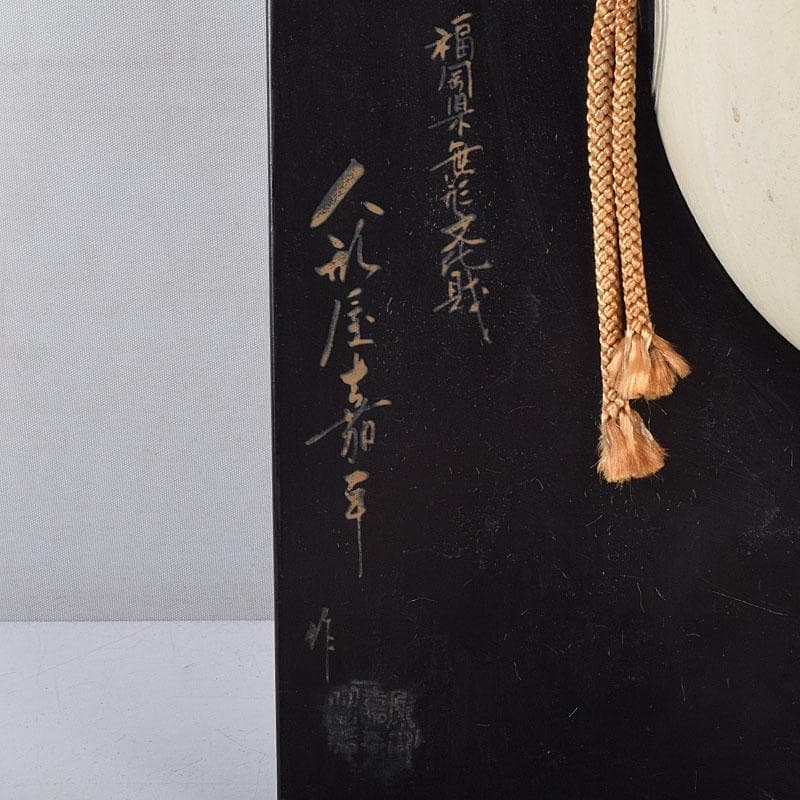 福岡県無形文化財
人形屋嘉平
作